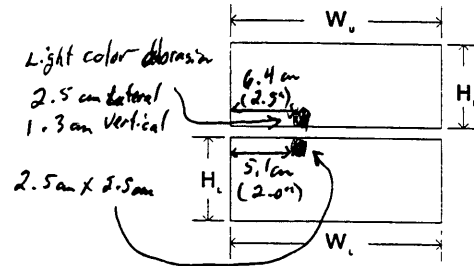 Wᵤ
Light color abrasion
2.5 cm lateral
1.3 cm vertical
6.4 cm
(2.5")
H
2.5 cm x 2.5 cm
5.1 cm
(2.0")
H_L
W_L